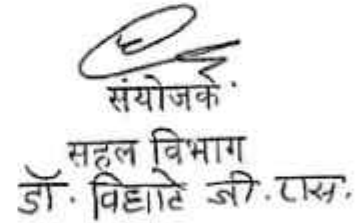 संयोजक
सहल विभाग
डॉ. विद्याटे जी. एस.